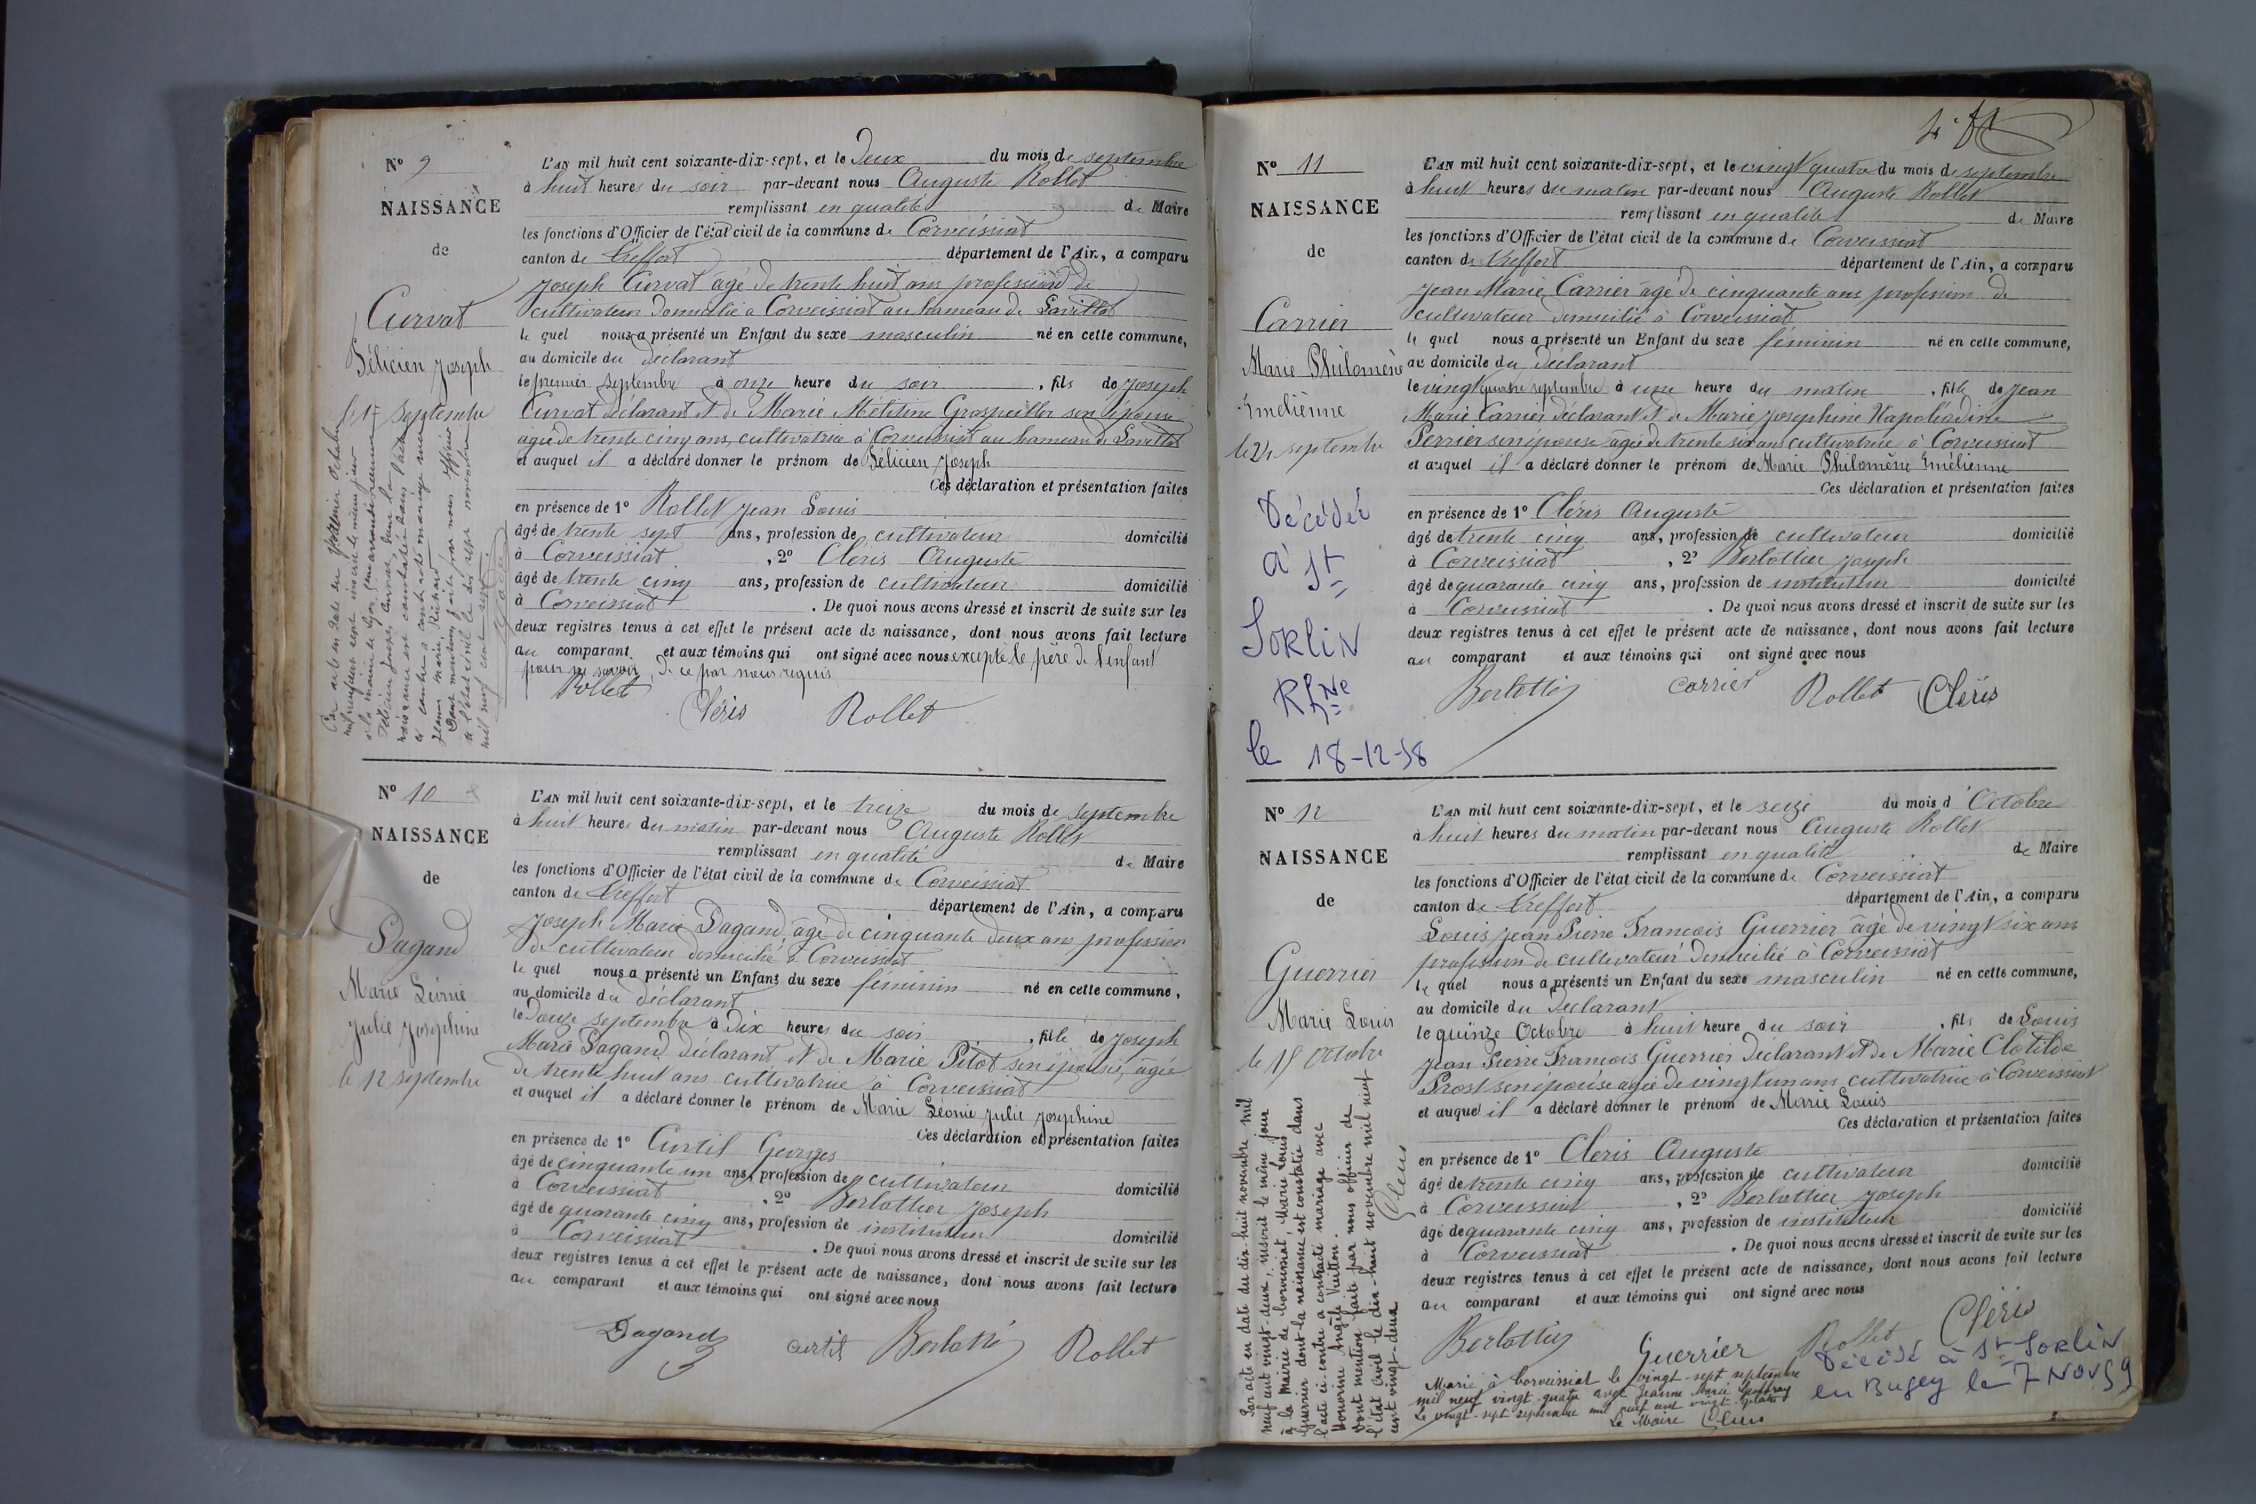 N° 9
NAISSANCE
de
Curvat
Félicien Joseph
le 1er Septembre
L'AN mil huit cent soixante-dix-sept, et le Deux du mois de septembre
à huit heures du soir par-devant nous Auguste Rollet
remplissant en qualité de Maire
les fonctions d'Officier de l'état civil de la commune de Corveissiat
canton de Treffort département de l'Ain, a comparu
Joseph Curvat âgé de trente huit ans profession de
cultivateur domicilié à Corveissiat au hameau de
le quel nous a présenté un Enfant du sexe masculin né en cette commune,
au domicile du déclarant
le premier septembre à onze heure du soir, fils de Joseph
Curvat déclarant et de Marie son épouse
agée de trente cinq ans, cultivatrice à Corveissiat au hameau de
et auquel il a déclaré donner le prénom de Félicien Joseph
Ces déclaration et présentation faites
en présence de 1° Rollet Jean Louis
âgé de trente sept ans, profession de cultivateur domicilié
à Corveissiat, 2° Cléris Auguste
âgé de trente cinq ans, profession de cultivateur domicilié
à Corveissiat. De quoi nous avons dressé et inscrit de suite sur les
deux registres tenus à cet effet le présent acte de naissance, dont nous avons fait lecture
au comparant et aux témoins qui ont signé avec nous excepté le père de l'enfant
pour ne savoir, de ce par nous requis
Rollet
Cléris Rollet
N° 10
NAISSANCE
de
Pagand
Marie Léonie
Julie Josephine
le 12 septembre
L'AN mil huit cent soixante-dix-sept, et le treize du mois de septembre
à huit heures du matin par-devant nous Auguste Rollet
remplissant en qualité de Maire
les fonctions d'Officier de l'état civil de la commune de Corveissiat
canton de Treffort département de l'Ain, a comparu
Joseph Marie Pagand, âgé de cinquante deux ans profession
de cultivateur domicilié à Corveissiat
le quel nous a présenté un Enfant du sexe féminin né en cette commune,
au domicile du déclarant
le Douze septembre à Dix heures du soir, fille de Joseph
Marie Pagand déclarant et de Marie Pitot son épouse, agée
de trente huit ans cultivatrice à Corveissiat
et auquel il a déclaré donner le prénom de Marie Léonie Julie Josephine
Ces déclaration et présentation faites
en présence de 1° Curtil Georges
âgé de cinquante un ans, profession de cultivateur domicilié
à Corveissiat, 2° Berlottier Joseph
âgé de quarante cinq ans, profession de instituteur domicilié
à Corveissiat. De quoi nous avons dressé et inscrit de suite sur les
deux registres tenus à cet effet le présent acte de naissance, dont nous avons fait lecture
au comparant et aux témoins qui ont signé avec nous
Pagand curtil Rollet
N° 11
NAISSANCE
de
Carrier
Marie Philomène
Emélienne
le 24 septembre
Décédée
à St
SORLIN
le 18-12-58
L'AN mil huit cent soixante-dix-sept, et le vingt quatre du mois de septembre
à huit heures du matin par-devant nous Auguste Rollet
remplissant en qualité de Maire
les fonctions d'Officier de l'état civil de la commune de Corveissiat
canton de Treffort département de l'Ain, a comparu
Jean Marie Carrier âgé de cinquante ans profession de
cultivateur domicilié à Corveissiat
le quel nous a présenté un Enfant du sexe féminin né en cette commune,
au domicile du déclarant
le vingt quatre septembre à une heure du matin, fille de Jean
Marie Carrier, déclarant et de Marie Josephine Napoléodine
Perrier son épouse agée de trente six ans cultivatrice à Corveissiat
et auquel il a déclaré donner le prénom de Marie Philomène Emélienne
Ces déclaration et présentation faites
en présence de 1° Cléris Auguste
âgé de trente cinq ans, profession de cultivateur domicilié
à Corveissiat, 2° Berlottier Joseph
âgé de quarante cinq ans, profession de instituteur domicilié
à Corveissiat. De quoi nous avons dressé et inscrit de suite sur les
deux registres tenus à cet effet le présent acte de naissance, dont nous avons fait lecture
au comparant et aux témoins qui ont signé avec nous
carrier Rollet Cléris
N° 12
NAISSANCE
de
Guerrier
Marie Louis
le 15 octobre
L'AN mil huit cent soixante-dix-sept, et le seize du mois d'Octobre
à huit heures du matin par-devant nous Auguste Rollet
remplissant en qualité de Maire
les fonctions d'Officier de l'état civil de la commune de Corveissiat
canton de Treffort département de l'Ain, a comparu
Louis Jean Pierre François Guerrier âgé de vingt six ans
profession de cultivateur domicilié à Corveissiat
le quel nous a présenté un Enfant du sexe masculin né en cette commune,
au domicile du déclarant
le quinze Octobre à huit heure du soir, fils de Louis
Jean Pierre François Guerrier déclarant et de Marie Clotilde
Prost son épouse agée de vingt un ans, cultivatrice à Corveissiat
et auquel il a déclaré donner le prénom de Marie Louis
Ces déclaration et présentation faites
en présence de 1° Cléris Auguste
âgé de trente cinq ans, profession de cultivateur domicilié
à Corveissiat, 2° Berlottier Joseph
âgé de quarante cinq ans, profession de instituteur domicilié
à Corveissiat. De quoi nous avons dressé et inscrit de suite sur les
deux registres tenus à cet effet le présent acte de naissance, dont nous avons fait lecture
au comparant et aux témoins qui ont signé avec nous
Guerrier Rollet Cléris
Par acte en date du dix-huit novembre mil
neuf cent vingt-deux, inscrit le même jour
à la Mairie de Corveissiat, Marie Louis
Guerrier dont la naissance est constatée dans
l'acte ci-contre a contracté mariage avec
Honorine Angèle
Dont mention faite par nous officier de
l'état civil le dix-huit novembre mil neuf
cent vingt-deux
Marié à Corveissiat le vingt-sept septembre
mil neuf vingt-quatre avec Jeanne Marie Geoffray
Le vingt-sept septembre mil neuf cent vingt-quatre
Le Maire
Décédé à St-SORLIN
en Bugey le 7 NOV 59